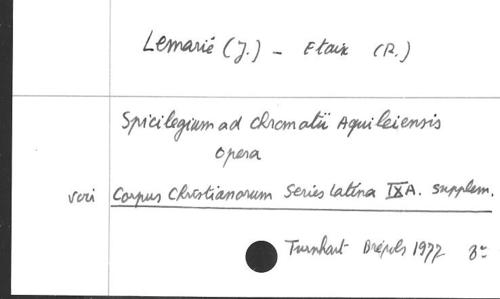 Lemarié (J.) - Etaix (R.)
Spicilegium ad Chromatii Aquileiensis
opera
Corpus Christianorum Series Latina IX A. supplem.
Turnhout Brépols 1977 8°